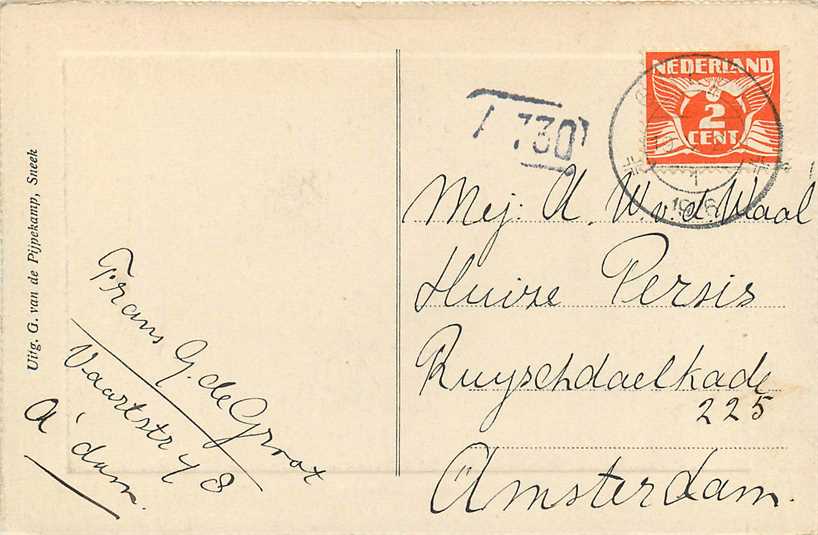 Uitg. G. van de Pijpekamp, Sneek
Frans G. de Groot
Vaartstr 48
A'dam.
730
NEDERLAND
2
CENT
1
Mej. A. W. v. d. Waal
Huize Persis
Ruyschdaelkade
225
Amsterdam.